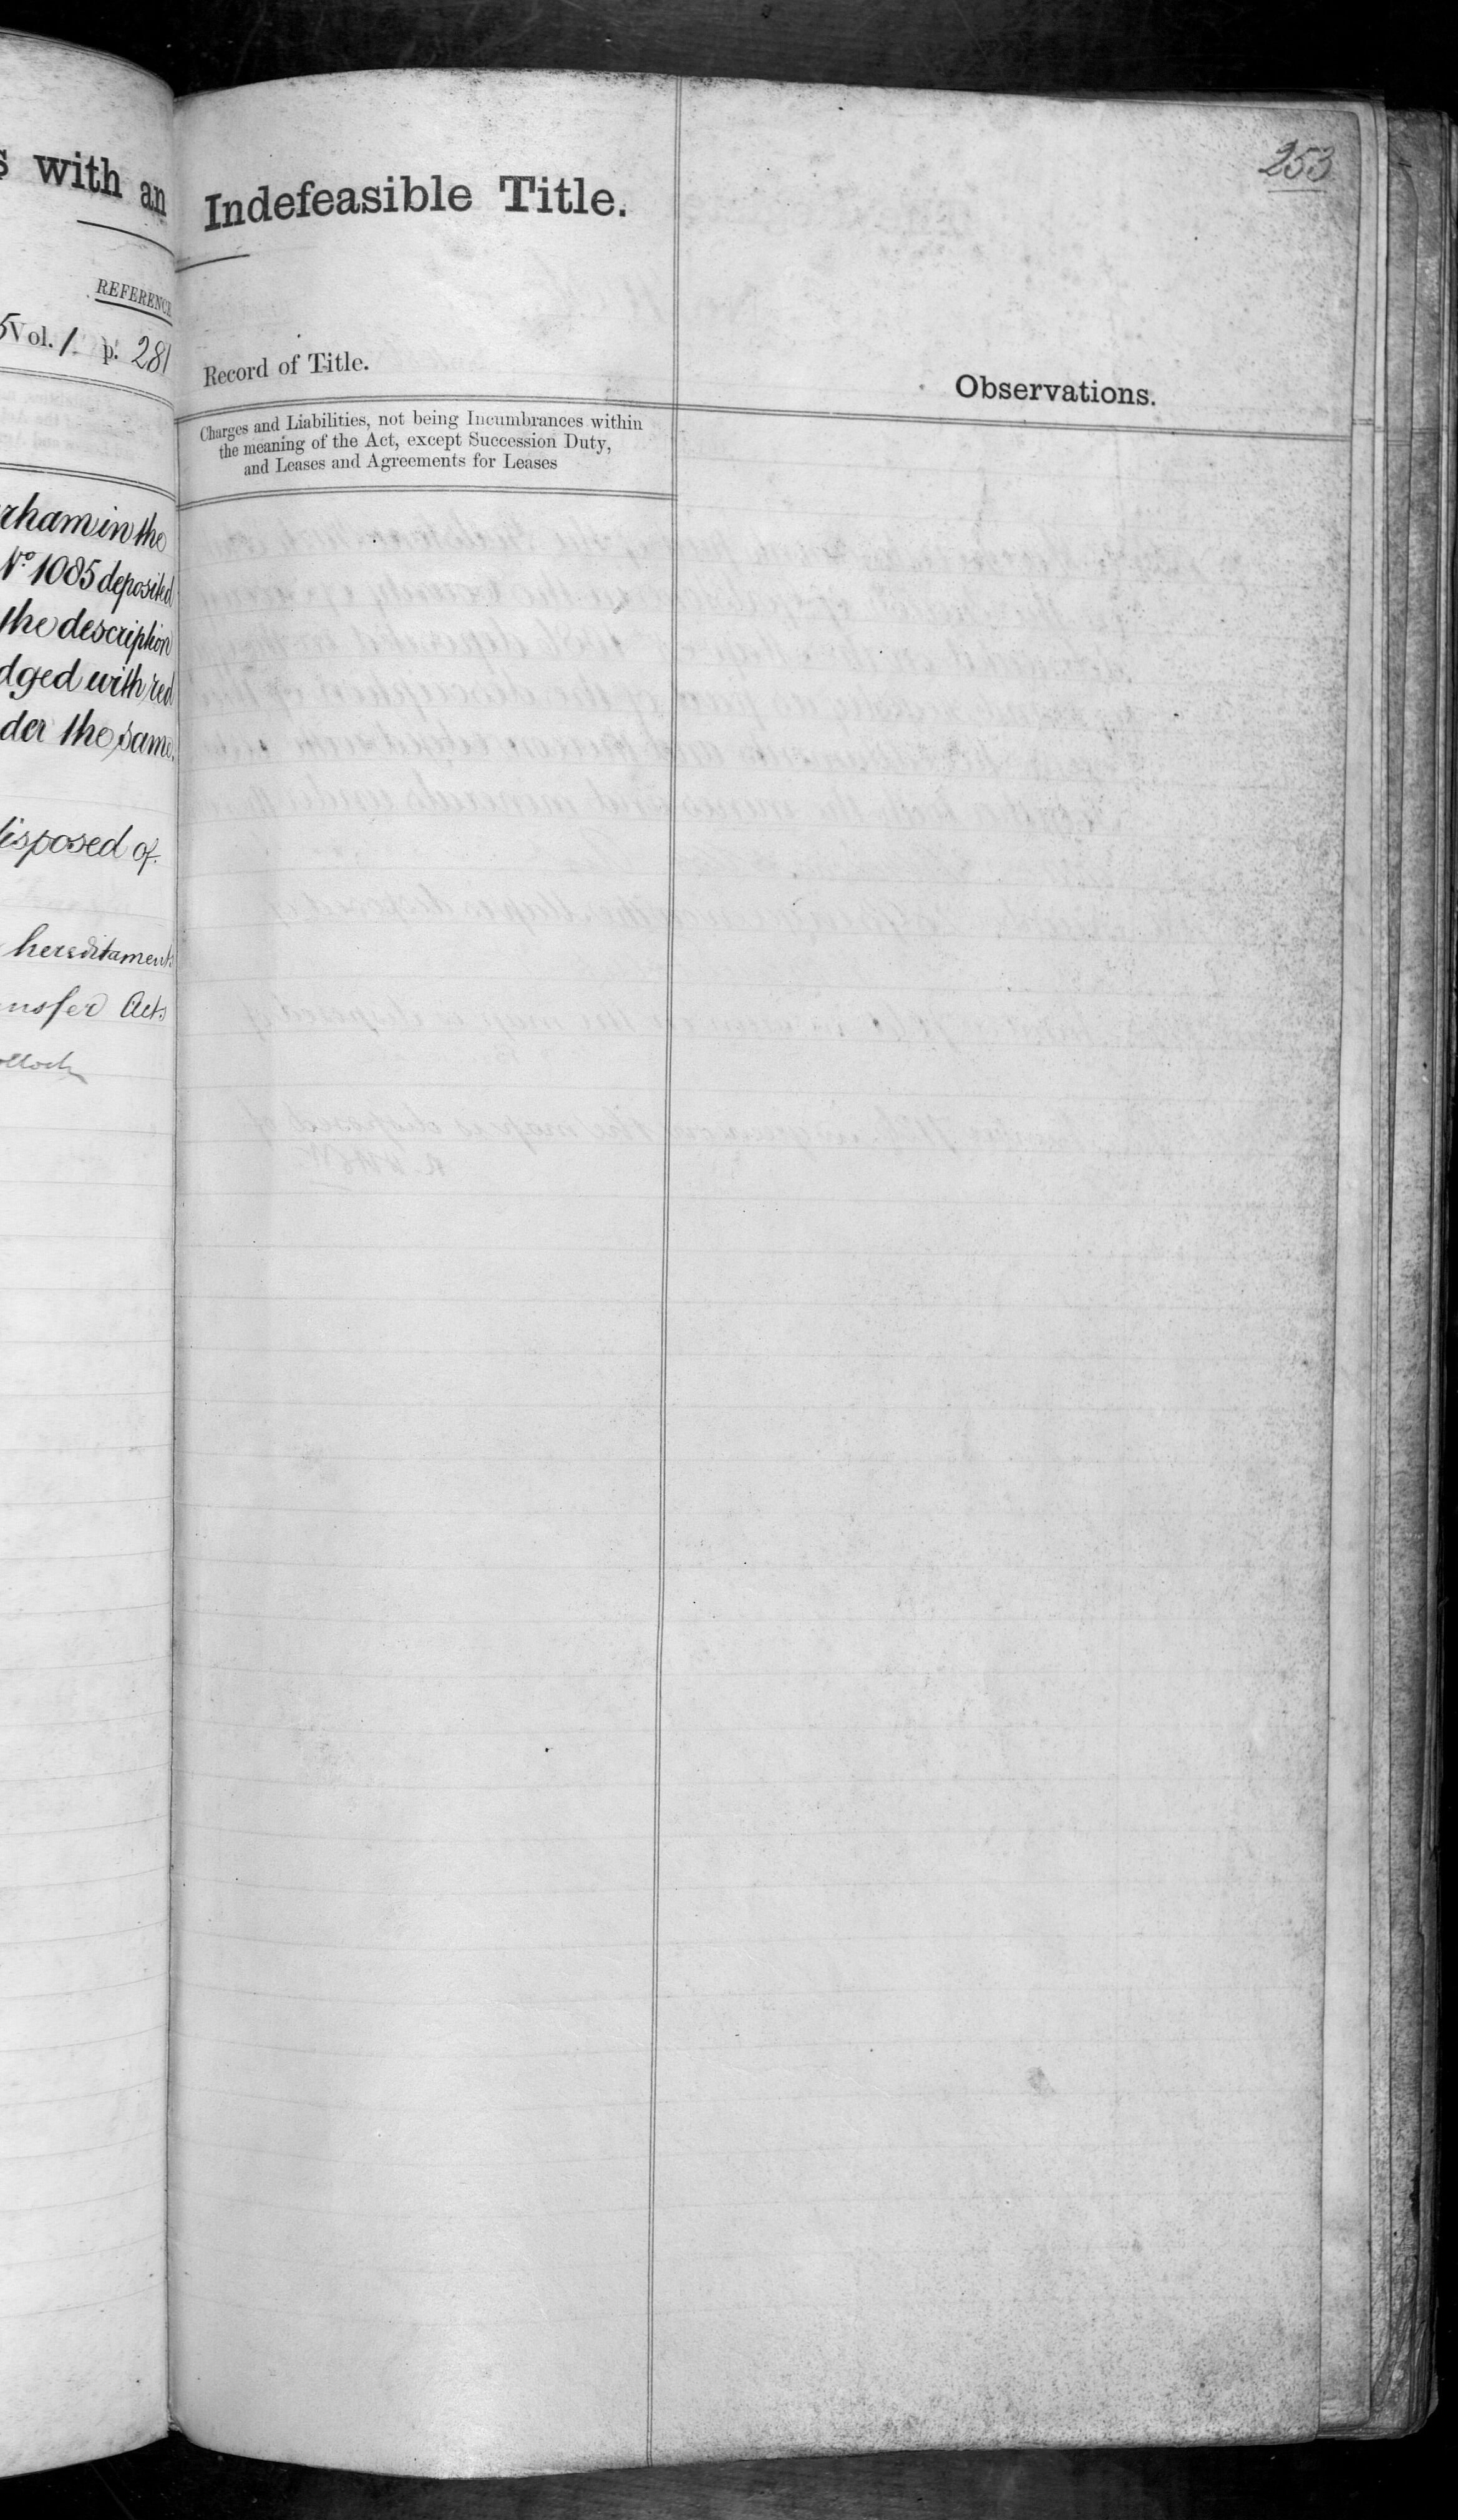 s with an
REFERENCE
Vol. 1. p. 281
rham in the
No. 1085 deposited
the description
dged with red
der the same.
disposed of.
hereditaments
nsfer Acts
253
Indefeasible Title.
Record of Title.
Observations.
Charges and Liabilities, not being Incumbrances within
the meaning of the Act, except Succession Duty,
and Leases and Agreements for Leases